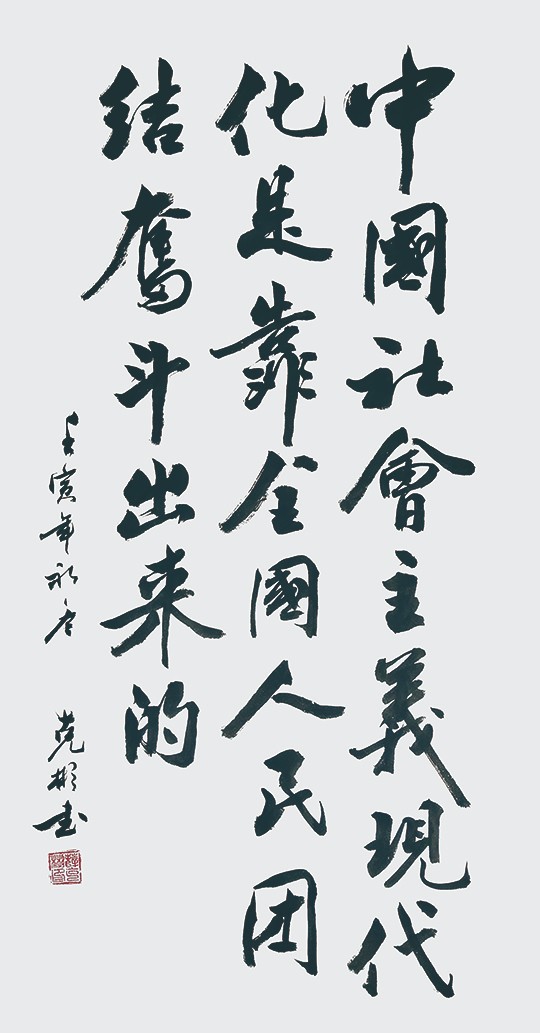 中國社會主義現代
化是靠全國人民团
结奮斗出来的
壬寅年初冬
克彬书